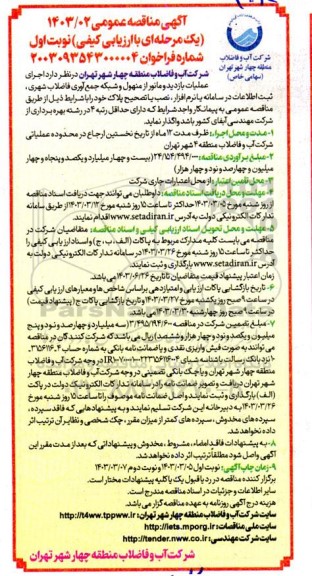 آگهی مناقصه عمومی ۱۴۰۳/۰۲
(یک مرحله‌ای با ارزیابی کیفی) نوبت اول
شماره فراخوان ۲۰۰۳۰۹۳۵۴۳۰۰۰۰۰۴
شرکت آب و فاضلاب
منطقه چهار شهر تهران
(سهامی خاص)
شرکت آب و فاضلاب منطقه چهار شهر تهران در نظر دارد اجرای
عملیات بازدید و مانور از منهول و شبکه جمع آوری فاضلاب شهری،
ثبت اطلاعات در سامانه یا نرم افزار، نصب یا تصحیح پلاک خود را با شرایط ذیل از طریق
مناقصه عمومی به پیمانکار واجد شرایط که دارای حداقل رتبه ۴ در رشته بهره برداری از
شرکت مهندسی آبفای کشور باشد واگذار نماید.
۱- مدت و محل اجرا: ظرف مدت ۱۲ ماه از تاریخ نخستین ارجاع در محدوده عملیاتی
شرکت آب و فاضلاب منطقه ۴ شهر تهران
۲- مبلغ برآوردی مناقصه: (بیست و چهار میلیارد و یکصد و پنجاه و چهار
میلیون و چهارصد و نود و چهار هزار)
۳- محل تأمین اعتبار: از محل اعتبارات جاری شرکت
۴- مهلت و محل دریافت اسناد مناقصه: داوطلبان می توانند جهت دریافت اسناد مناقصه
از روز شنبه مورخ ۱۴۰۳/۰۳/۰۵ حداکثر تا ساعت ۱۵ روز شنبه مورخ ۱۴۰۳/۰۳/۱۲ از طریق سامانه
تدارکات الکترونیکی دولت به آدرس www.setadiran.ir اقدام نمایند.
۵- مهلت و محل تحویل اسناد ارزیابی کیفی و اسناد مناقصه: متقاضیان شرکت در
مناقصه می بایست کلیه مدارک مربوط به پاکات (الف، ب، ج) و اسناد ارزیابی کیفی را
حداکثر تا ساعت ۱۵ روز شنبه مورخ ۱۴۰۳/۰۳/۲۶ در سامانه تدارکات الکترونیکی دولت به
آدرس www.setadiran.ir بارگذاری و ثبت نمایند.
زمان اعتبار پیشنهاد قیمت متقاضیان تا تاریخ ۱۴۰۳/۰۶/۲۶ می باشد.
۶- تاریخ بازگشایی پاکات ارزیابی و امتیازدهی براساس شاخص ها و معیارهای ارزیابی کیفی
در ساعت ۹ صبح روز یکشنبه مورخ ۱۴۰۳/۰۳/۲۷ و تاریخ بازگشایی پاکات ج (پیشنهاد قیمت)
در ساعت ۹ صبح روز چهارشنبه ۱۴۰۳/۰۳/۳۰ می باشد.
۷- مبلغ تضمین شرکت در مناقصه (سه میلیارد و چهارصد و نود و پنج
میلیون و یکصد و نود و چهار هزار و ششصد) ریال می باشد که شرکت کنندگان در مناقصه
می توانند به صورت فیش واریزی نقدی و یا ضمانت نامه بانکی به شماره حساب
نزد بانک رسالت با شناسه شبای در وجه شرکت آب و فاضلاب
منطقه چهار شهر تهران و یا چک بانکی تضمینی در وجه شرکت آب و فاضلاب منطقه چهار
شهر تهران دریافت و تصویر ضمانت نامه را در سامانه تدارکات الکترونیک دولت در پاکت
(الف) بارگذاری و ثبت نمایند و اصل ضمانت نامه موصوف را تا ساعت ۱۵ روز شنبه مورخ
۱۴۰۳/۰۳/۲۶ به دبیرخانه این شرکت تسلیم نمایند و به پیشنهادهایی که فاقد سپرده،
سپرده های مخدوش، سپرده های کمتر از میزان مقرر، چک شخصی و نظایر آن ترتیب اثر
داده نخواهد شد.
۸- به پیشنهادات فاقد امضاء، مشروط، مخدوش و پیشنهاداتی که بعد از مدت مقرر این
آگهی واصل شود مطلقاً ترتیب اثر داده نخواهد شد.
۹- زمان چاپ آگهی: نوبت اول ۱۴۰۳/۰۳/۰۵ و نوبت دوم ۱۴۰۳/۰۳/۰۷
برگزار کننده مناقصه در رد یا قبول یک یا کلیه پیشنهادات مختار است.
سایر اطلاعات و جزئیات در اسناد مناقصه مندرج است.
هزینه درج آگهی روزنامه به عهده مناقصه گزار می باشد.
شرکت آب و فاضلاب منطقه چهار شهر تهران: http://t4ww.tppww.ir
سایت ملی مناقصات: http://iets.mporg.ir
سایت شرکت مهندسی: http://tender.nww.co.ir
شرکت آب و فاضلاب منطقه چهار شهر تهران